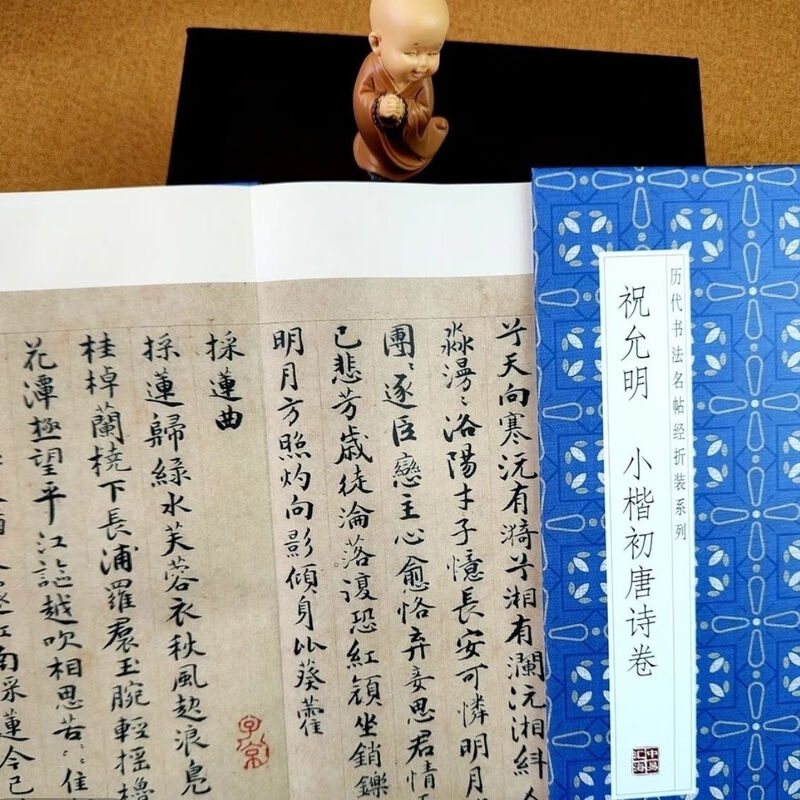 历代书法名帖经折装系列
祝允明 小楷初唐诗卷
兮天向寒沅有漪兮湘有瀾沅湘糾
淼漫〻洛陽才子憶長安可憐明月
團〻逐臣戀主心愈恪弃妾思君情
已悲芳歲徒淪落復恐紅顔坐銷鑠
明月方照灼向影傾身比葵藿
採蓮曲
採蓮歸綠水芙蓉衣秋風起浪鳧
桂棹蘭橈下長浦羅裙玉腕輕搖櫓
花潭極望平江謳越吹相思苦〻佳
江南采蓮今已